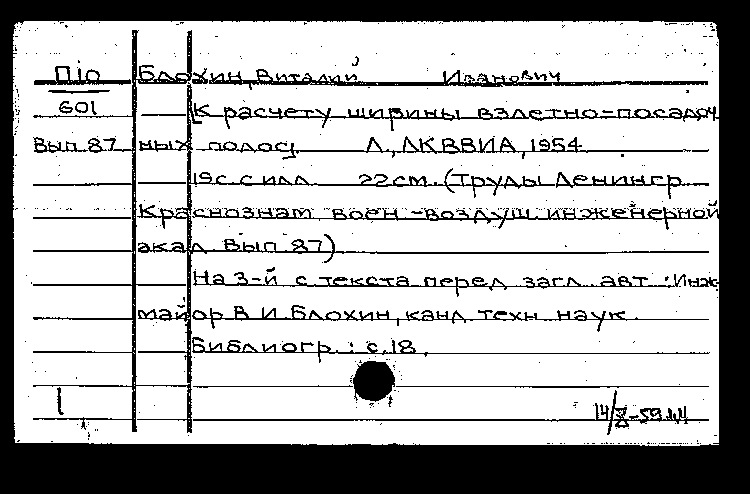 П10 Блохин, Виталий Иванович
601 К расчету ширины взлетно-посадоч
Вып. 87 ных полос. Л., ЛКВВИА, 1954
19с. с илл. 22см. (Труды Ленингр
Краснознам. воен-воздуш инженерной
акад Вып 87)
На 3-й с текста перед загл авт : Инж
майор В И Блохин, канд техн наук
Библиогр : с. 18.
1
14/X-59